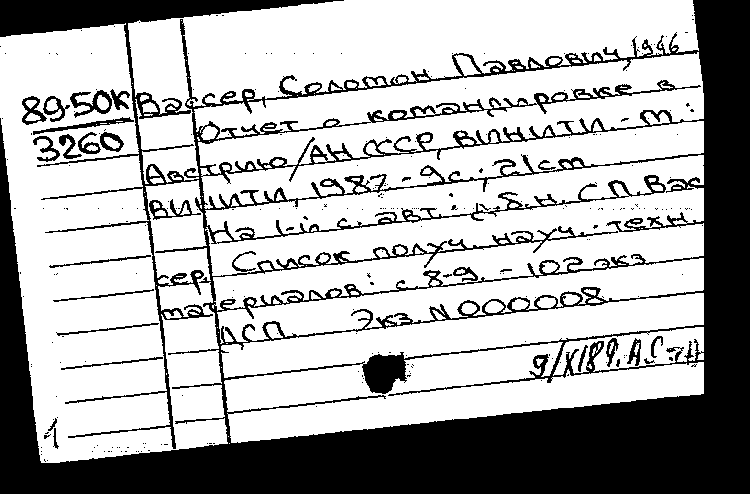 89-50К Вассер, Соломон Павлович, 1946
3260 Отчет о командировке в
Австрию/АН СССР, ВИНИТИ. - М.:
ВИНИТИ, 1987. - 9 с.; 21 cm.
На 1-й с. авт.: д.б.н. С.П. Вас
сер. Список получ. науч.-техн.
материалов: с. 8-9. - 102 экз.
ДСП. Экз. N 000008.
9/XI 89.
1